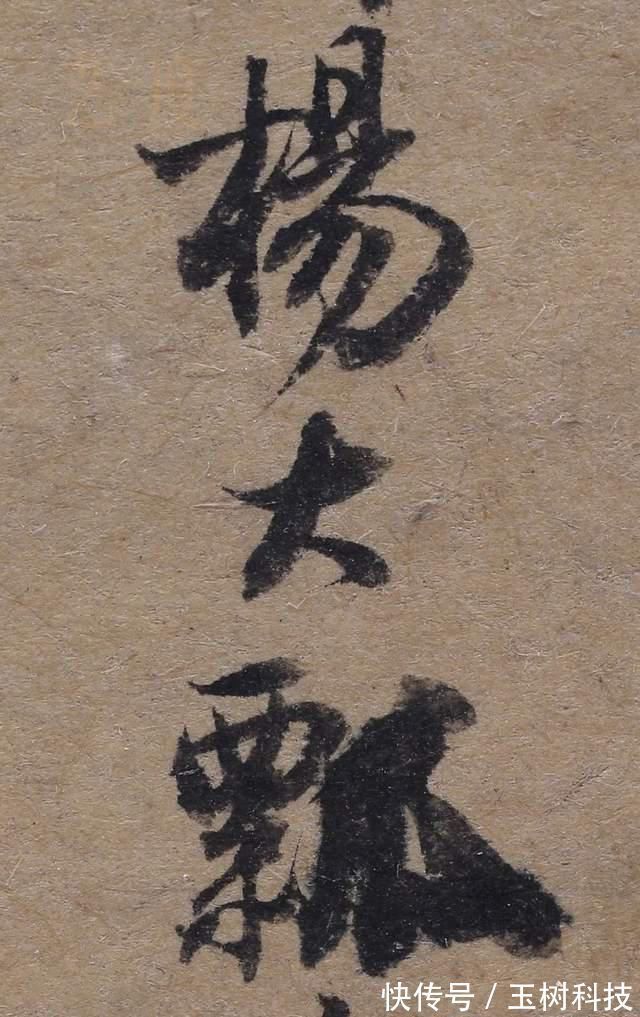 楊大瓢
快传号 / 玉树科技